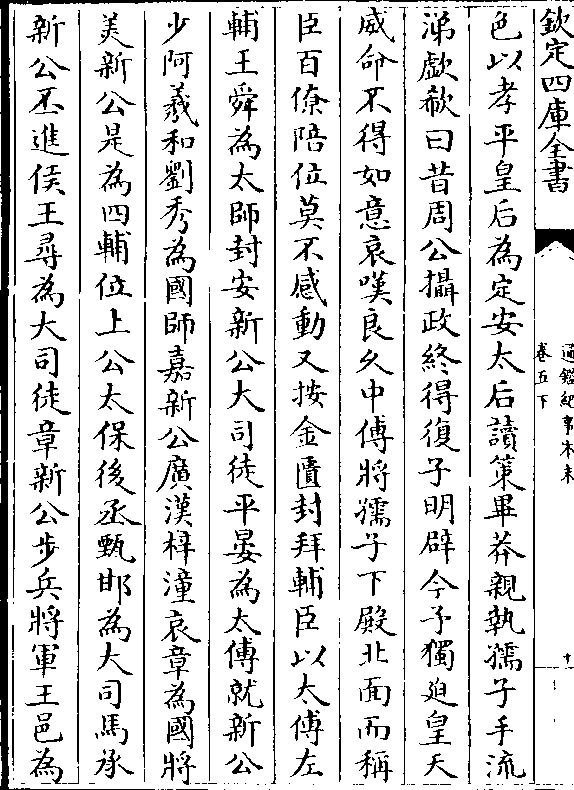 欽定四庫全書
通鑑紀事本末
卷五下
色以孝平皇后為定安太后讀策畢莽親執孺子手流
涕歔欷曰昔周公攝政終得復子明辟今予獨迫皇天
威命不得如意哀嘆良久中傅將孺子下殿北面而稱
臣百僚陪位莫不感動又按金匱封拜輔臣以太傅左
輔王舜為太師封安新公大司徒平晏為太傅就新公
少阿羲和劉秀為國師嘉新公廣漢梓潼哀章為國將
美新公是為四輔位上公太保後丞甄邯為大司馬承
新公丕進侯王尋為大司徒章新公步兵將軍王邑為